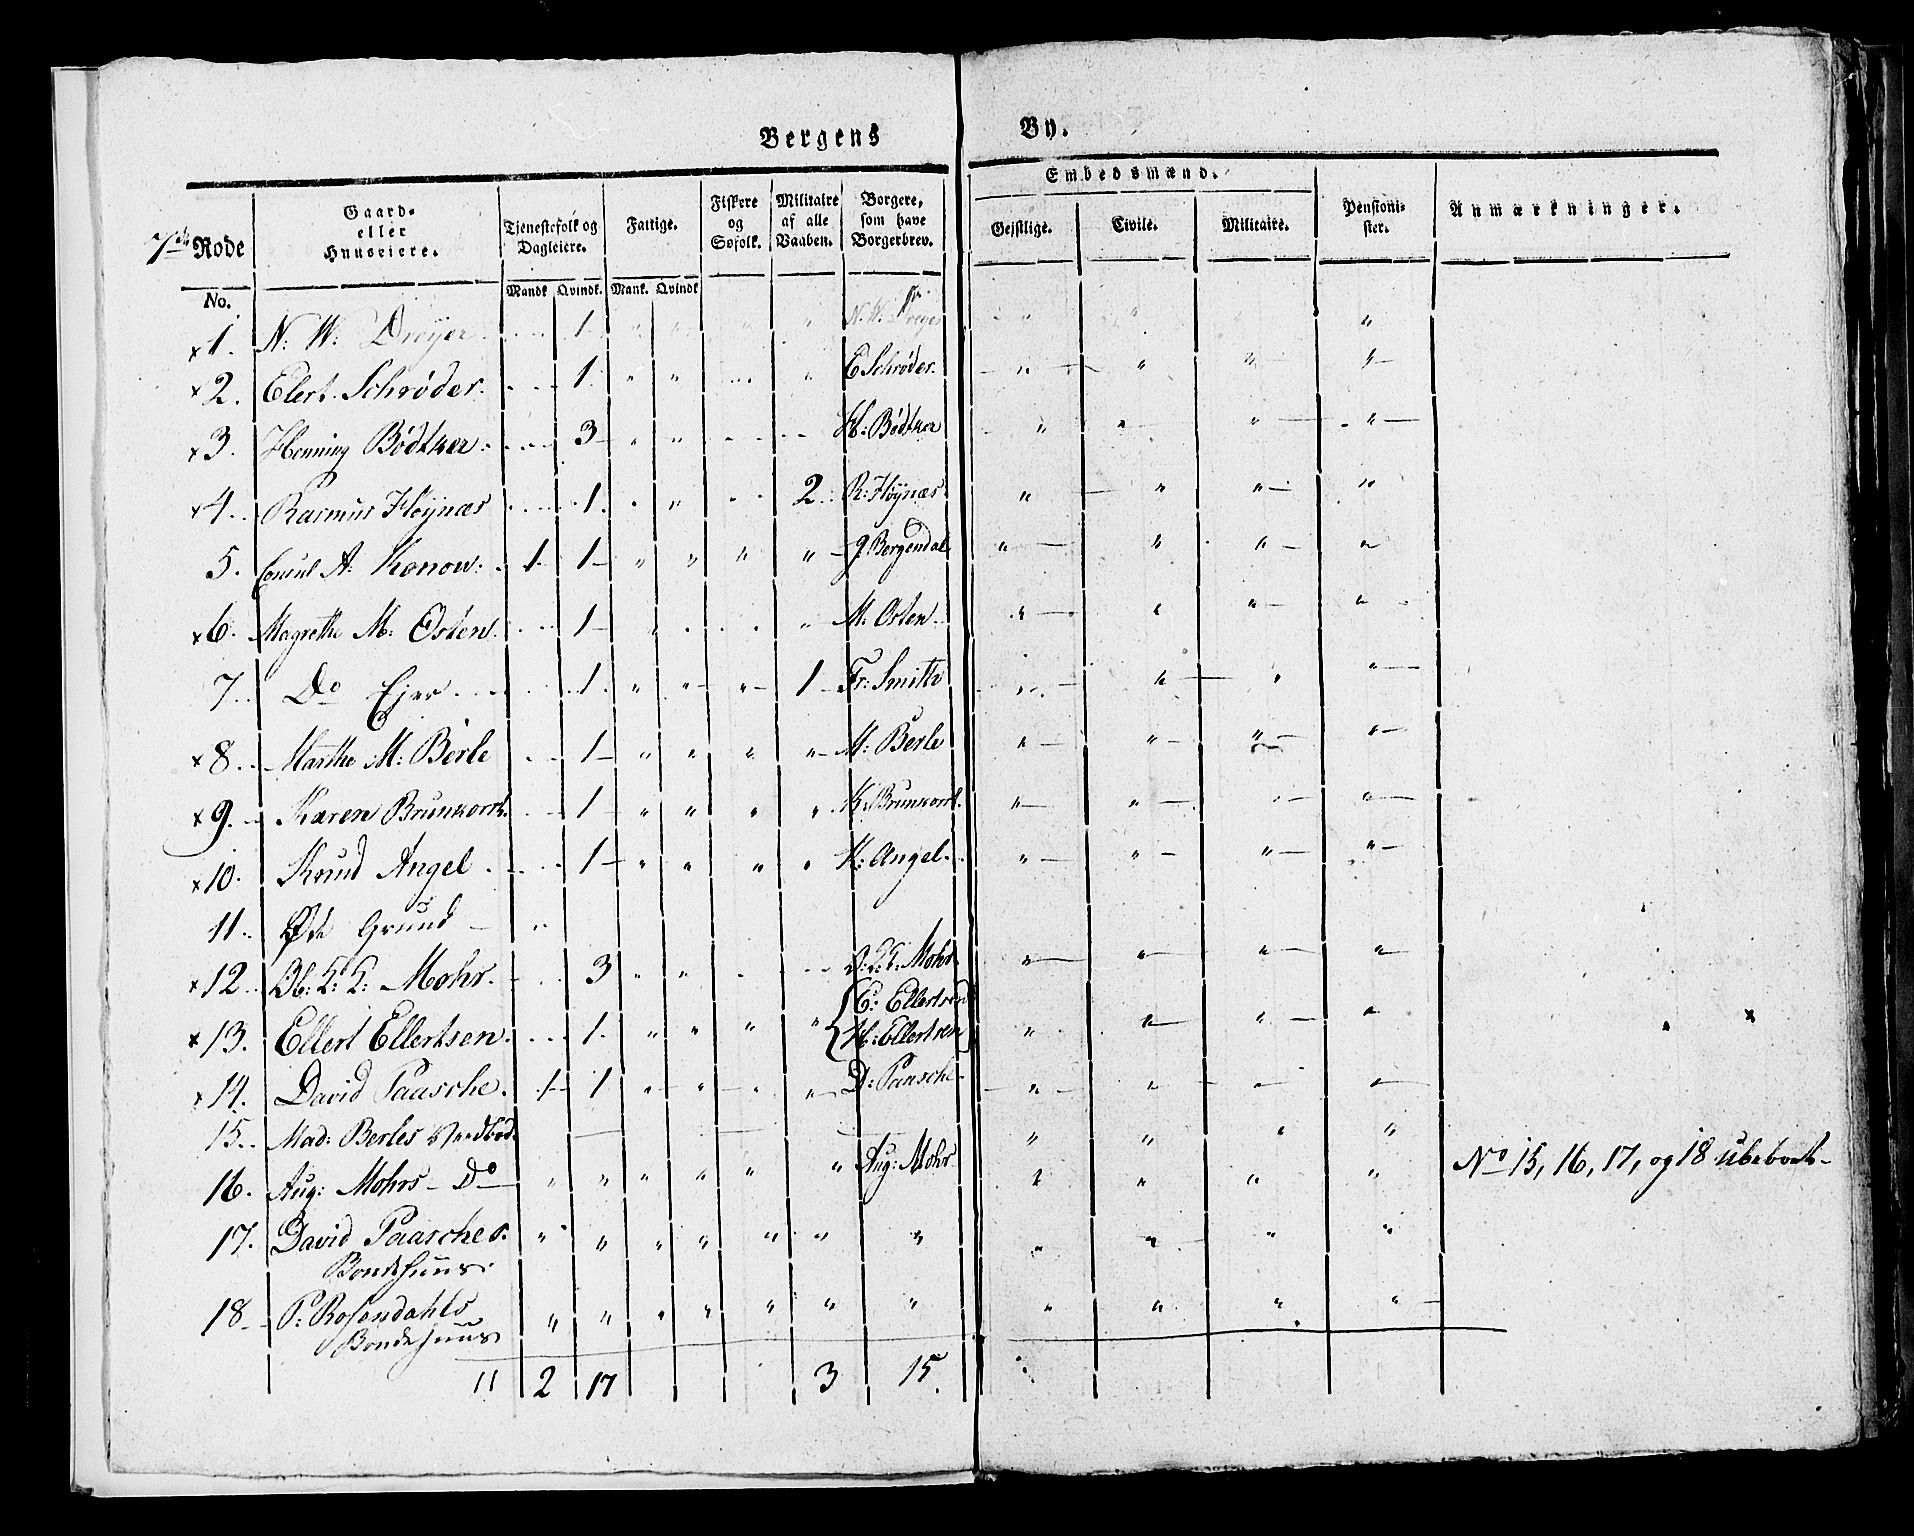 Bergens By.
7de Rode
No.
Gaard-
eller
Huuseiere.
Tjenestefolk og
Dagleiere.
Mandk. Qvindk.
Fattige.
Mank. Qvindk.
Fiskere
og
Søfolk.
Militaire
af alle
Vaaben.
Borgere,
som have
Borgerbrev.
Embedsmænd.
Gejstlige. Civile. Militaire.
Pensioni-
ster.
Anmærkninger.
x 1. N: W: Dreyer 1 " " " " N: W: Dreyer " " "
x 2. Elert Schrøder. 1 " " " E Schrøder. " " " "
x 3. Henning Bødtker. 3 " " H: Bødtker " " " "
x 4. Rasmus Høynæs 1. " " 2 R: Høynæs " " " "
5. Consul A: Konow: 1 1 " " " " J Bergendal " " " "
x 6. Magrethe M: Osten. 1 " " M. Osten " " " "
7. Do Ejer 1. " " " 1 Fr: Smith " " " "
x 8. Marthe M: Berle 1 " " " " M: Berle " " " "
x 9. Karen Brunkorst. 1 " " " " K: Brunkorst. " " " "
x 10. Knud Angel 1 " " " " K: Angel. " " " "
11. Øde Grund
x 12. Mohr. 3 " " Mohr " " " "
x 13. Ellert Ellertsen. 1. " " " " { E: Ellertsen
H: Ellertsen " " " "
x 14. David Paasche. 1 1 " " " " D: Paasche " " " "
15. Mad: Berles Vedbod. " " " "
16. Aug: Mohrs Do " " " " " " Aug: Mohr " " " "
No 15, 16, 17, og 18 ubeboet
17. David Paasches.
Bondehuus. " " " " " " " " " " "
18. P: Rosendahls
Bondehuus " " " " " " " " " " "
11 2 17 3 15.